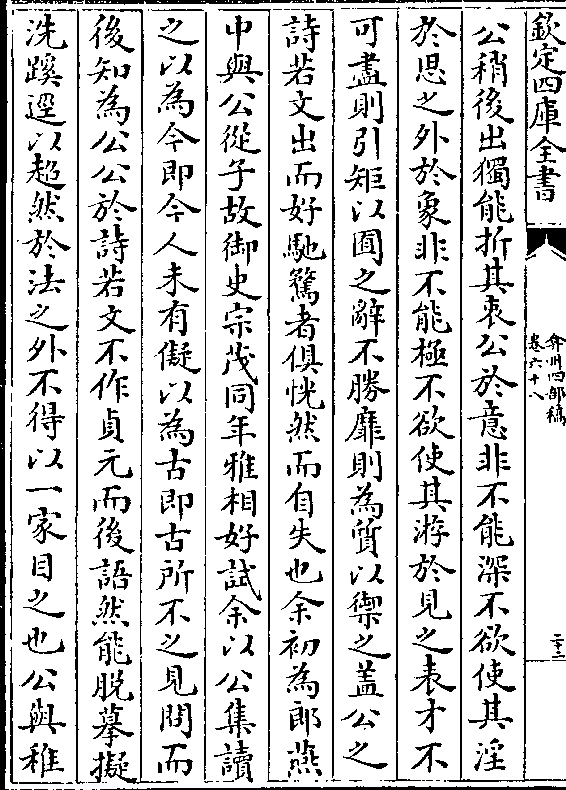 欽定四庫全書
弇州四部稿
卷六十八
二十二
公稍後出獨能折其衷公於意非不能深不欲使其淫
於思之外於象非不能極不欲使其游於見之表才不
可盡則引矩以囿之辭不勝靡則為質以禦之蓋公之
詩若文出而好馳騖者俱恍然而自失也余初為郎燕
中與公從子故御史宗茂同年雅相好試余以公集讀
之以為今即今人未有儗以為古即古所不之見問而
後知為公公於詩若文不作貞元而後語然能脫摹擬
洗蹊逕以超然於法之外不得以一家目之也公與稚